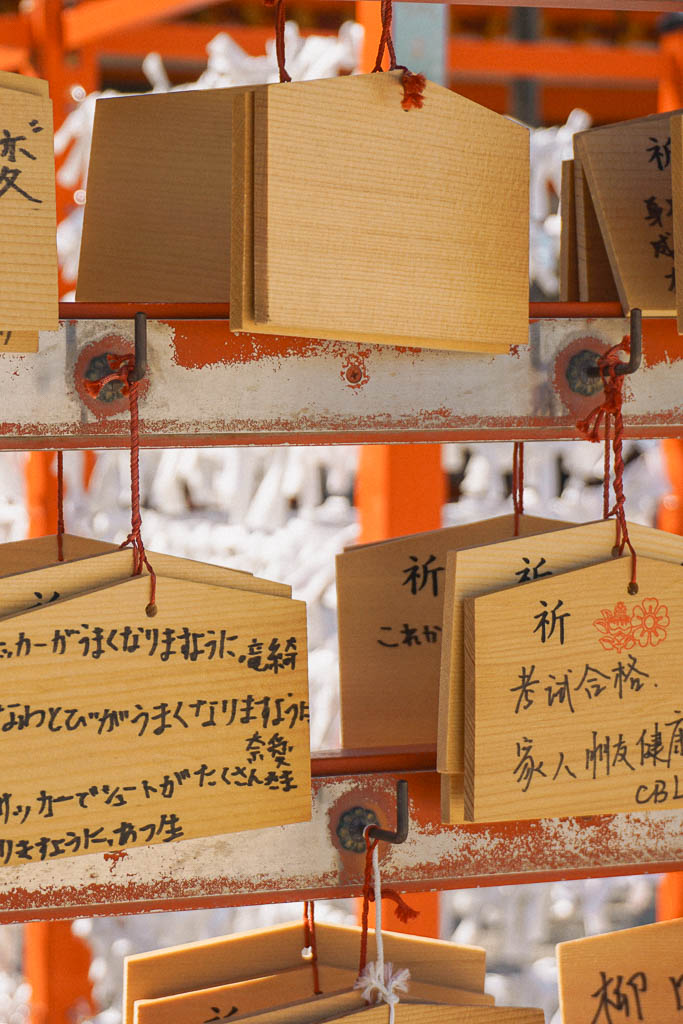 ボ
タ
祈
身
成
祈
これか
祈
祈
考试合格.
家人朋友健康
CBL
ッカーがうまくなりますように 竜綺
なわとびがうまくなりますように
奈愛
サッカーでシュートがたくさん
りますように。あつ生
祈
柳